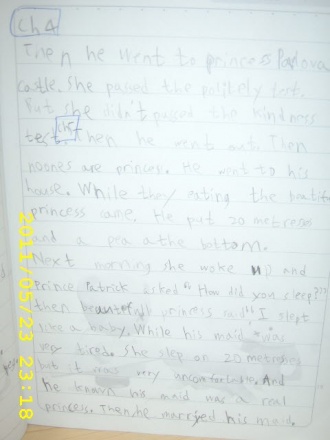 Ch 4
Then he went to princess Padova
castle. She passed the politely test.
But she didn't passed the kindness
test. Ch5 Then he went out. Then
noones are princes. He went to his
house. While they eating the beautiful
princess came. He put 20 metreses
and a pea a the bottom.
Next morning she woke up and
prince Patrick asked "How did you sleep???"
then beauteful princess said "I slept
like a baby. While his maid was
very tired. She slep on 20 metreses
but it was very uncomfortable. And
he known his maid was a real
princess. Then he married his maid.
2011/05/23 23:18